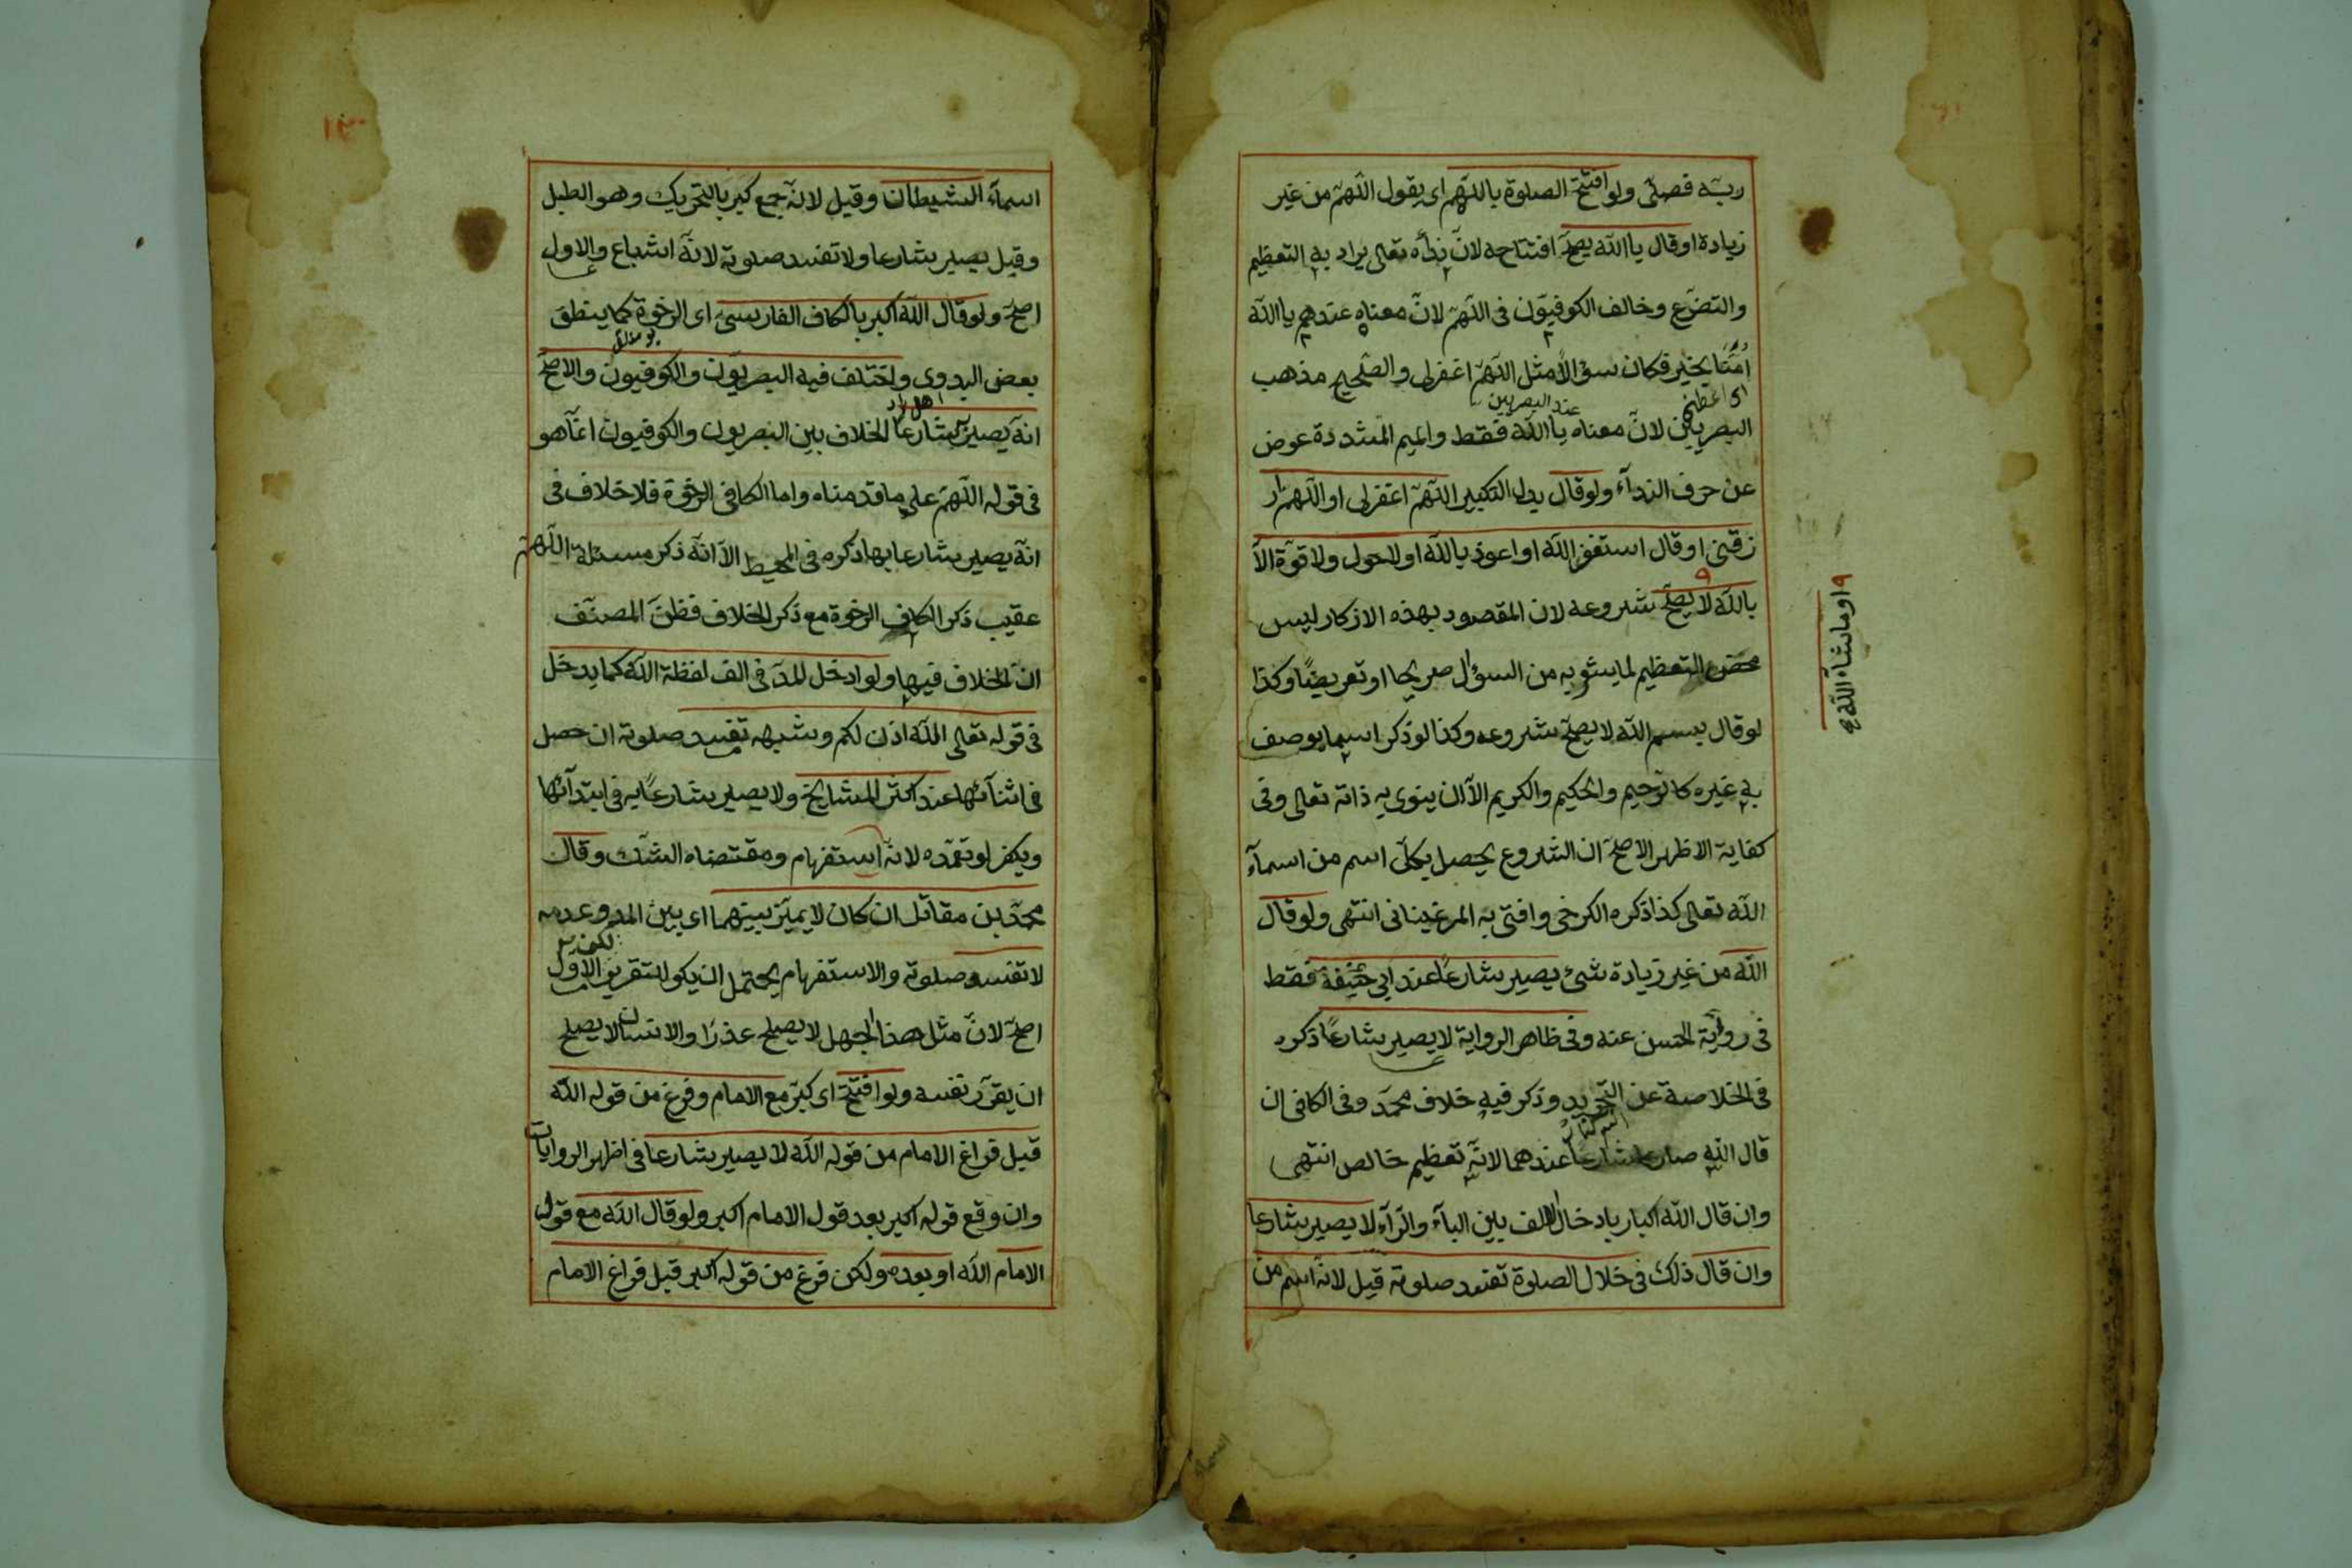 ربه فصلى ولو افتتح الصلوة باللهم اى يقول اللهم من غير
زيادة او قال يا الله يصح افتتاحه لان نداءه تعالى يراد به التعظيم
والتضرع وخالف الكوفيون فى اللهم لان معناه عندهم يا الله
امنا بخير فكان سؤالا مثل اللهم اغفرلى والصحيح مذهب
عند البصريين
البصريين لان معناه يا الله فقط والميم المشددة عوض
عن حرف الندآء ولو قال بدل التكبير اللهم اغفرلى او اللهم ار
زقنى او قال استغفر الله او اعوذ بالله او لاحول ولا قوة الا
بالله لا يصح شروعه لان المقصود بهذه الاذكار ليس
او ما شآء الله
محض التعظيم لما يشوبه من السؤال صريحا او تعريضا وكذا
لو قال بسم الله لا يصح شروعه وكذا لو ذكر اسما يوصف
به غيره كالرحيم والحكيم والكريم الا ان ينوى به ذاته تعالى وفى
كفاية الاظهر الاصح ان الشروع يحصل بكل اسم من اسمآء
الله تعالى كذا ذكره الكرخى وافتى به المرغينانى انتهى ولو قال
الله من غير زيادة شئ يصير شارعا عند ابى حنيفة فقط
فى رواية الحسن عنه وفى ظاهر الرواية لا يصير شارعا ذكره
فى الخلاصة عن التجريد وذكر فيه خلاف محمد وفى الكافى ان
قال الله صار شارعا عندهما لانه تعظيم خالص انتهى
وان قال الله اكبار بادخال الالف بين البآء والرآء لا يصير شارعا
وان قال ذلك فى خلال الصلوة تفسد صلوته قيل لانه اسم من
اسمآء
١٣
اسمآء الشيطان وقيل لانه جمع كبر بالتحريك وهو الطبل
وقيل يصير شارعا ولا تفسد صلوته لانه اشباع والاول
اصح ولو قال الله اكبر بالكاف الفارسى اى الرخوة كما ينطق
بعض البدوى واختلف فيه البصريون والكوفيون والاصح
انه يصير شارعا الخلاف بين البصريون والكوفيون انما هو
فى قوله اللهم على ما قدمناه واما الكافى الرخوة فلا خلاف فى
انه يصير شارعا بها ذكره فى المحيط الا انه ذكر مسئلة اللهم
عقيب ذكر الكاف الرخوة مع ذكر الخلاف فظن المصنف
ان الخلاف فيها ولو ادخل المد فى الف لفظة الله كما يدخل
فى قوله تعالى الله اذن لكم وشبهه تفسد صلوته ان حصل
فى اثنآئها عند اكثر المشايخ ولا يصير شارعا به فى ابتدآئها
ويكفر لو تعمده لانه استفهام ومقتضاه الشك وقال
محمد بن مقاتل ان كان لا يميز بينهما اى بين المد وعدمه
لا تفسد صلوته والاستفهام يحتمل ان يكو للتقرير الاول
اصح لان مثل هذا الجهل لا يصلح عذرا والانسان لا يصلح
ان يقرر نفسه ولو افتتح اى كبر مع الامام وفرغ من قوله الله
قبل فراغ الامام من قوله الله لا يصير شارعا فى اظهر الروايات
وان وقع قوله اكبر بعد قول الامام اكبر ولو قال الله مع قول
الامام الله او بعده ولكن فرغ من قوله اكبر قبل فراغ الامام